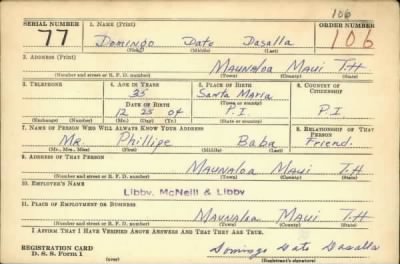 106
SERIAL NUMBER 1. NAME (Print) ORDER NUMBER
77 Domingo Dato Dasalla 106
(First) (Middle) (Last)
2. ADDRESS (Print)
Maunaloa Maui T.H
(Number and street or R. F. D. number) (Town) (County) (State)
3. TELEPHONE 4. AGE IN YEARS 5. PLACE OF BIRTH 6. COUNTRY OF CITIZENSHIP
35 Santa Maria
DATE OF BIRTH (Town or county)
12 25 04 P.I. P.I
(Exchange) (Number) (Mo.) (Day) (Yr.) (State or country)
7. NAME OF PERSON WHO WILL ALWAYS KNOW YOUR ADDRESS 8. RELATIONSHIP OF THAT PERSON
Mr Phillipe Baba Friend.
(Mr., Mrs., Miss) (First) (Middle) (Last)
9. ADDRESS OF THAT PERSON
Maunaloa Maui T.H
(Number and street or R. F. D. number) (Town) (County) (State)
10. EMPLOYER'S NAME
Libby, McNeill & Libby
11. PLACE OF EMPLOYMENT OR BUSINESS
Maunaloa Maui T.H
(Number and street or R. F. D. number) (Town) (County) (State)
I AFFIRM THAT I HAVE VERIFIED ABOVE ANSWERS AND THAT THEY ARE TRUE.
REGISTRATION CARD
D. S. S. Form 1 Domingo Dato Dasalla
(over) (Registrant's signature)